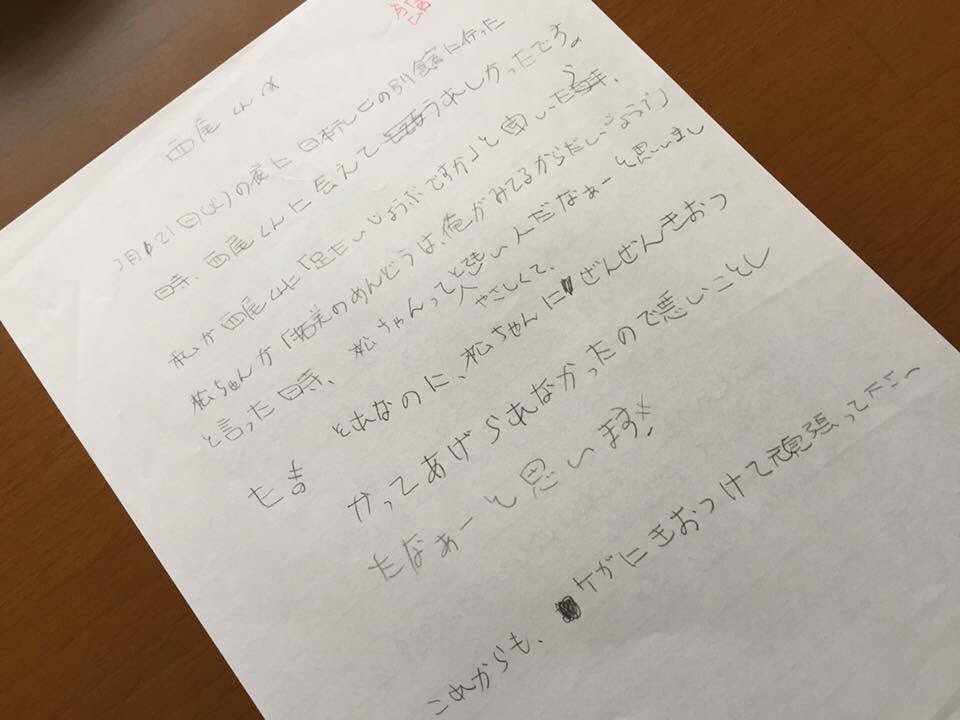 西尾くんへ
3月21日(火)の夜に日本テレビの別館に行った
時、西尾くんに会えてうれしかったです。
私が西尾くんに「足だいじょうぶですか」と聞いた時、
松ちゃんが「拓美のめんどうは、俺がみてるからだいじょうブ」
と言った時、松ちゃんって
やさしくて、
人だなぁーと思いまし
た
それなのに、松ちゃんにぜんぜんきおつ
かってあげられなかったので悪いことし
たなぁーと思います!
これからも、ケガにきおつけて頑張って